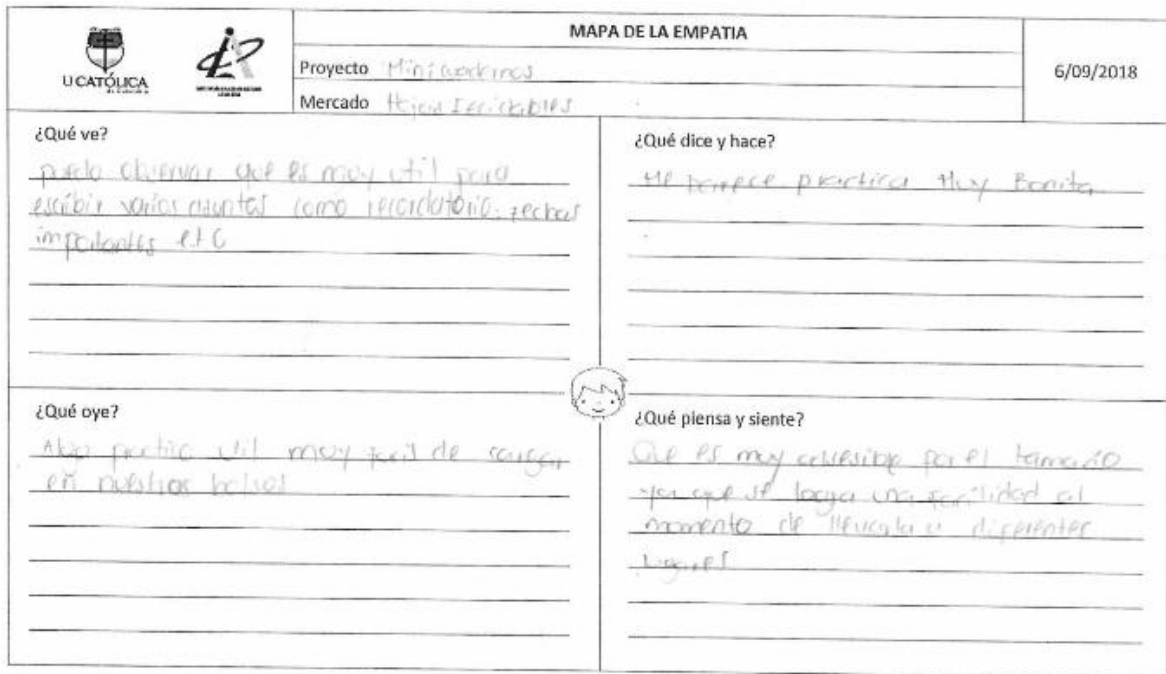 U CATÓLICA
de Colombia
MAPA DE LA EMPATIA
Proyecto
Mercado Hojas
6/09/2018
¿Qué ve?
puedo observar que es muy util para
escibir varios asuntos como recordatorio, fechas
importantes etc
¿Qué dice y hace?
Me parece practica Muy Bonita
¿Qué oye?
Algo practico util muy facil de cargar
en nuestros bolsos
¿Qué piensa y siente?
Que es muy por el tamaño
ya que se logra una facilidad al
momento de llevarla a diferentes
lugares